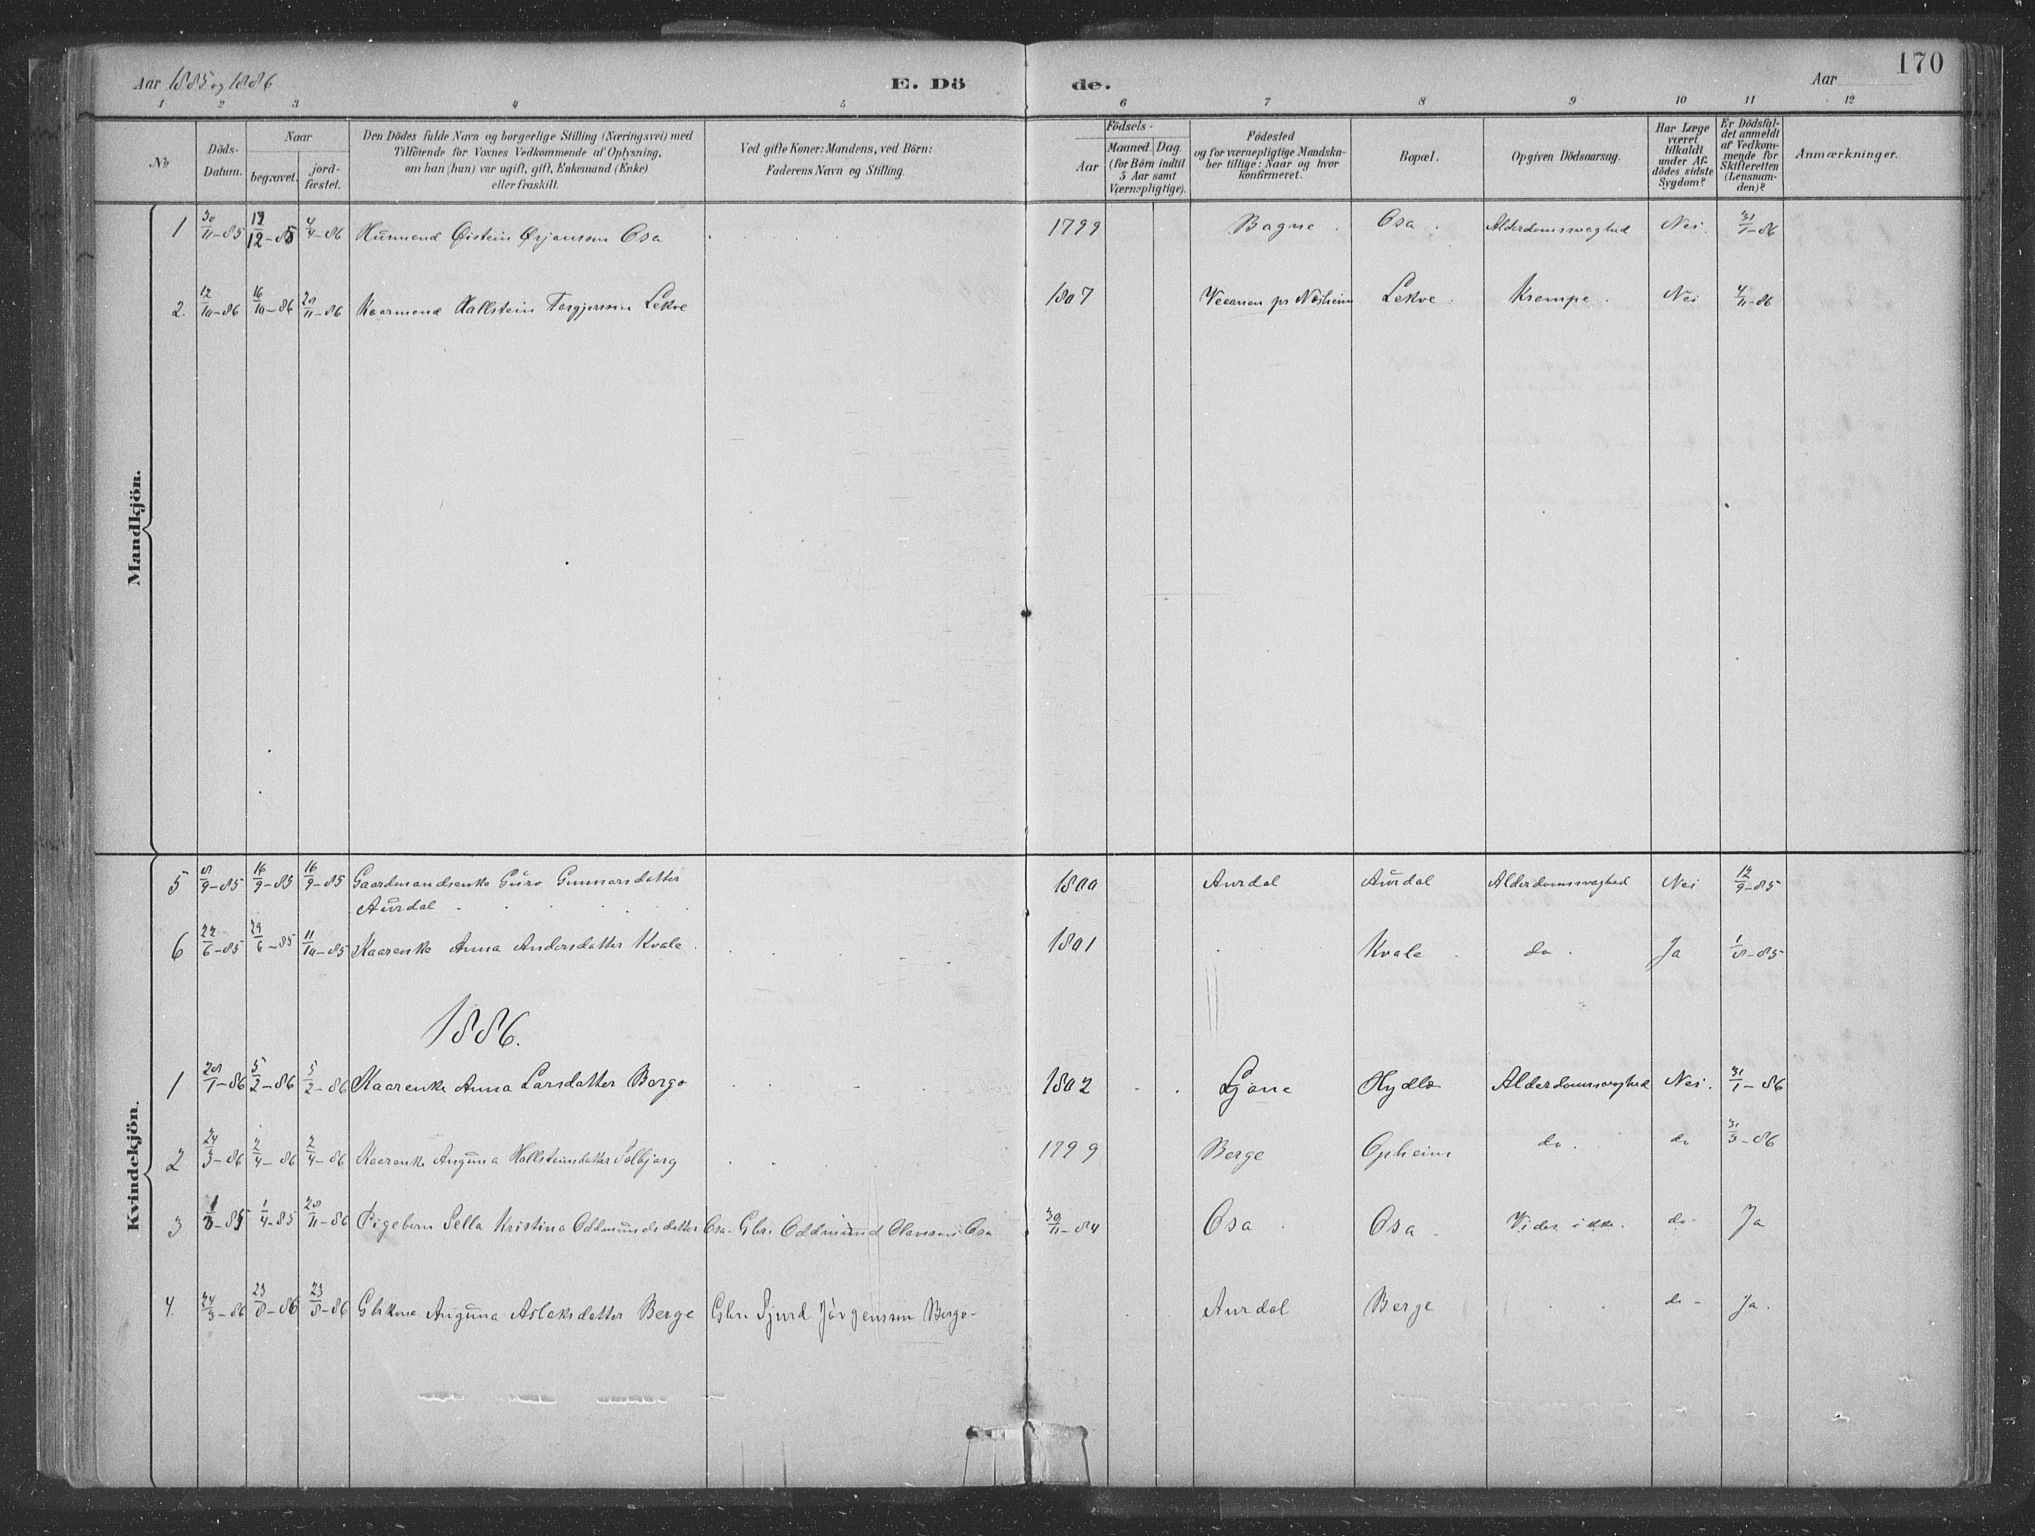 170
Aar 1885 og 1886 E. Dö de. Aar
1 2 3 4 5 6 7 8 9 10 11 12
No
Döds-
Datum.
Naar
begravet.
jord-
fæstet.
Den Dödes fulde Navn og borgerlige Stilling (Næringsvei) med
Tilföiende for Voxnes Vedkommende af Oplysning,
om han (hun) var ugift, gift, Enkemand (Enke)
eller fraskilt.
Ved gifte Koner: Mandens, ved Börn:
Faderens Navn og Stilling.
Födsels-
Aar
Maaned. Dag.
(for Börn indtil
5 Aar samt
Værnepligtige).
Födested
og for værnepligtige Mandska-
ber tillige: Naar og hvor
konfirmeret.
Bopæl.
Opgiven Dödsaarsag.
Har Læge
været
tilkaldt
under Af-
dödes sidste
Sygdom?
Er Dödsfal-
det anmeldt
af Vedkom-
mende for
Skifteretten
(Lensman-
den)?
Anmærkninger.
Mandkjön.
1 30/11-85 /12-85 4/4-86 Husmand Øistein Ørjanssen Osa 1799 Bagne Osa Alderdomssvaghed Nei 31/1-86
2. 12/10-86 16/10-86 28/11-86 Kaarmand Hallstein Torgjerssen Lekve 1807 pr Næsheim Lekve Krampe Nei 4/11-86
Kvindekjön.
5 8/9-85 16/9-85 16/9-85 Gaardmandsenke Guro Gunnarsdatter 1800 Aurdal Aurdal Alderdomssvaghed Nei 12/9-85
Aurdal
6 22/6-85 29/6-85 11/10-85 Kaarenke Anna Andersdatter Kvale 1801 Kvale do Ja 1/8-85
1886.
1 28/1-86 5/2-86 5/2-86 Kaarenke Anna Larsdatter Berge 1802 Ljone Hydle Alderdomssvaghed Nei. 31/1-86
2 24/3-86 2/4-86 2/4-86 Kaarenke Anguna Hallsteinsdatter Solbjorg 1799 Berge Opheim do. do 31/3-86
3 /3-85 1/4-85 28/11-86 Pigebarn Sella Kristina Oddmundsdatter Osa. Gbr. Oddmund Olavssen Osa 30/11-84 Osa Osa Vides ikke. do Ja
4. 24/3-86 23/8-86 23/8-86 Gbskone Anguna Aslaksdatter Berge Gbr. Sjurd Jørgenssen Berge Aurdal Berge do Ja.